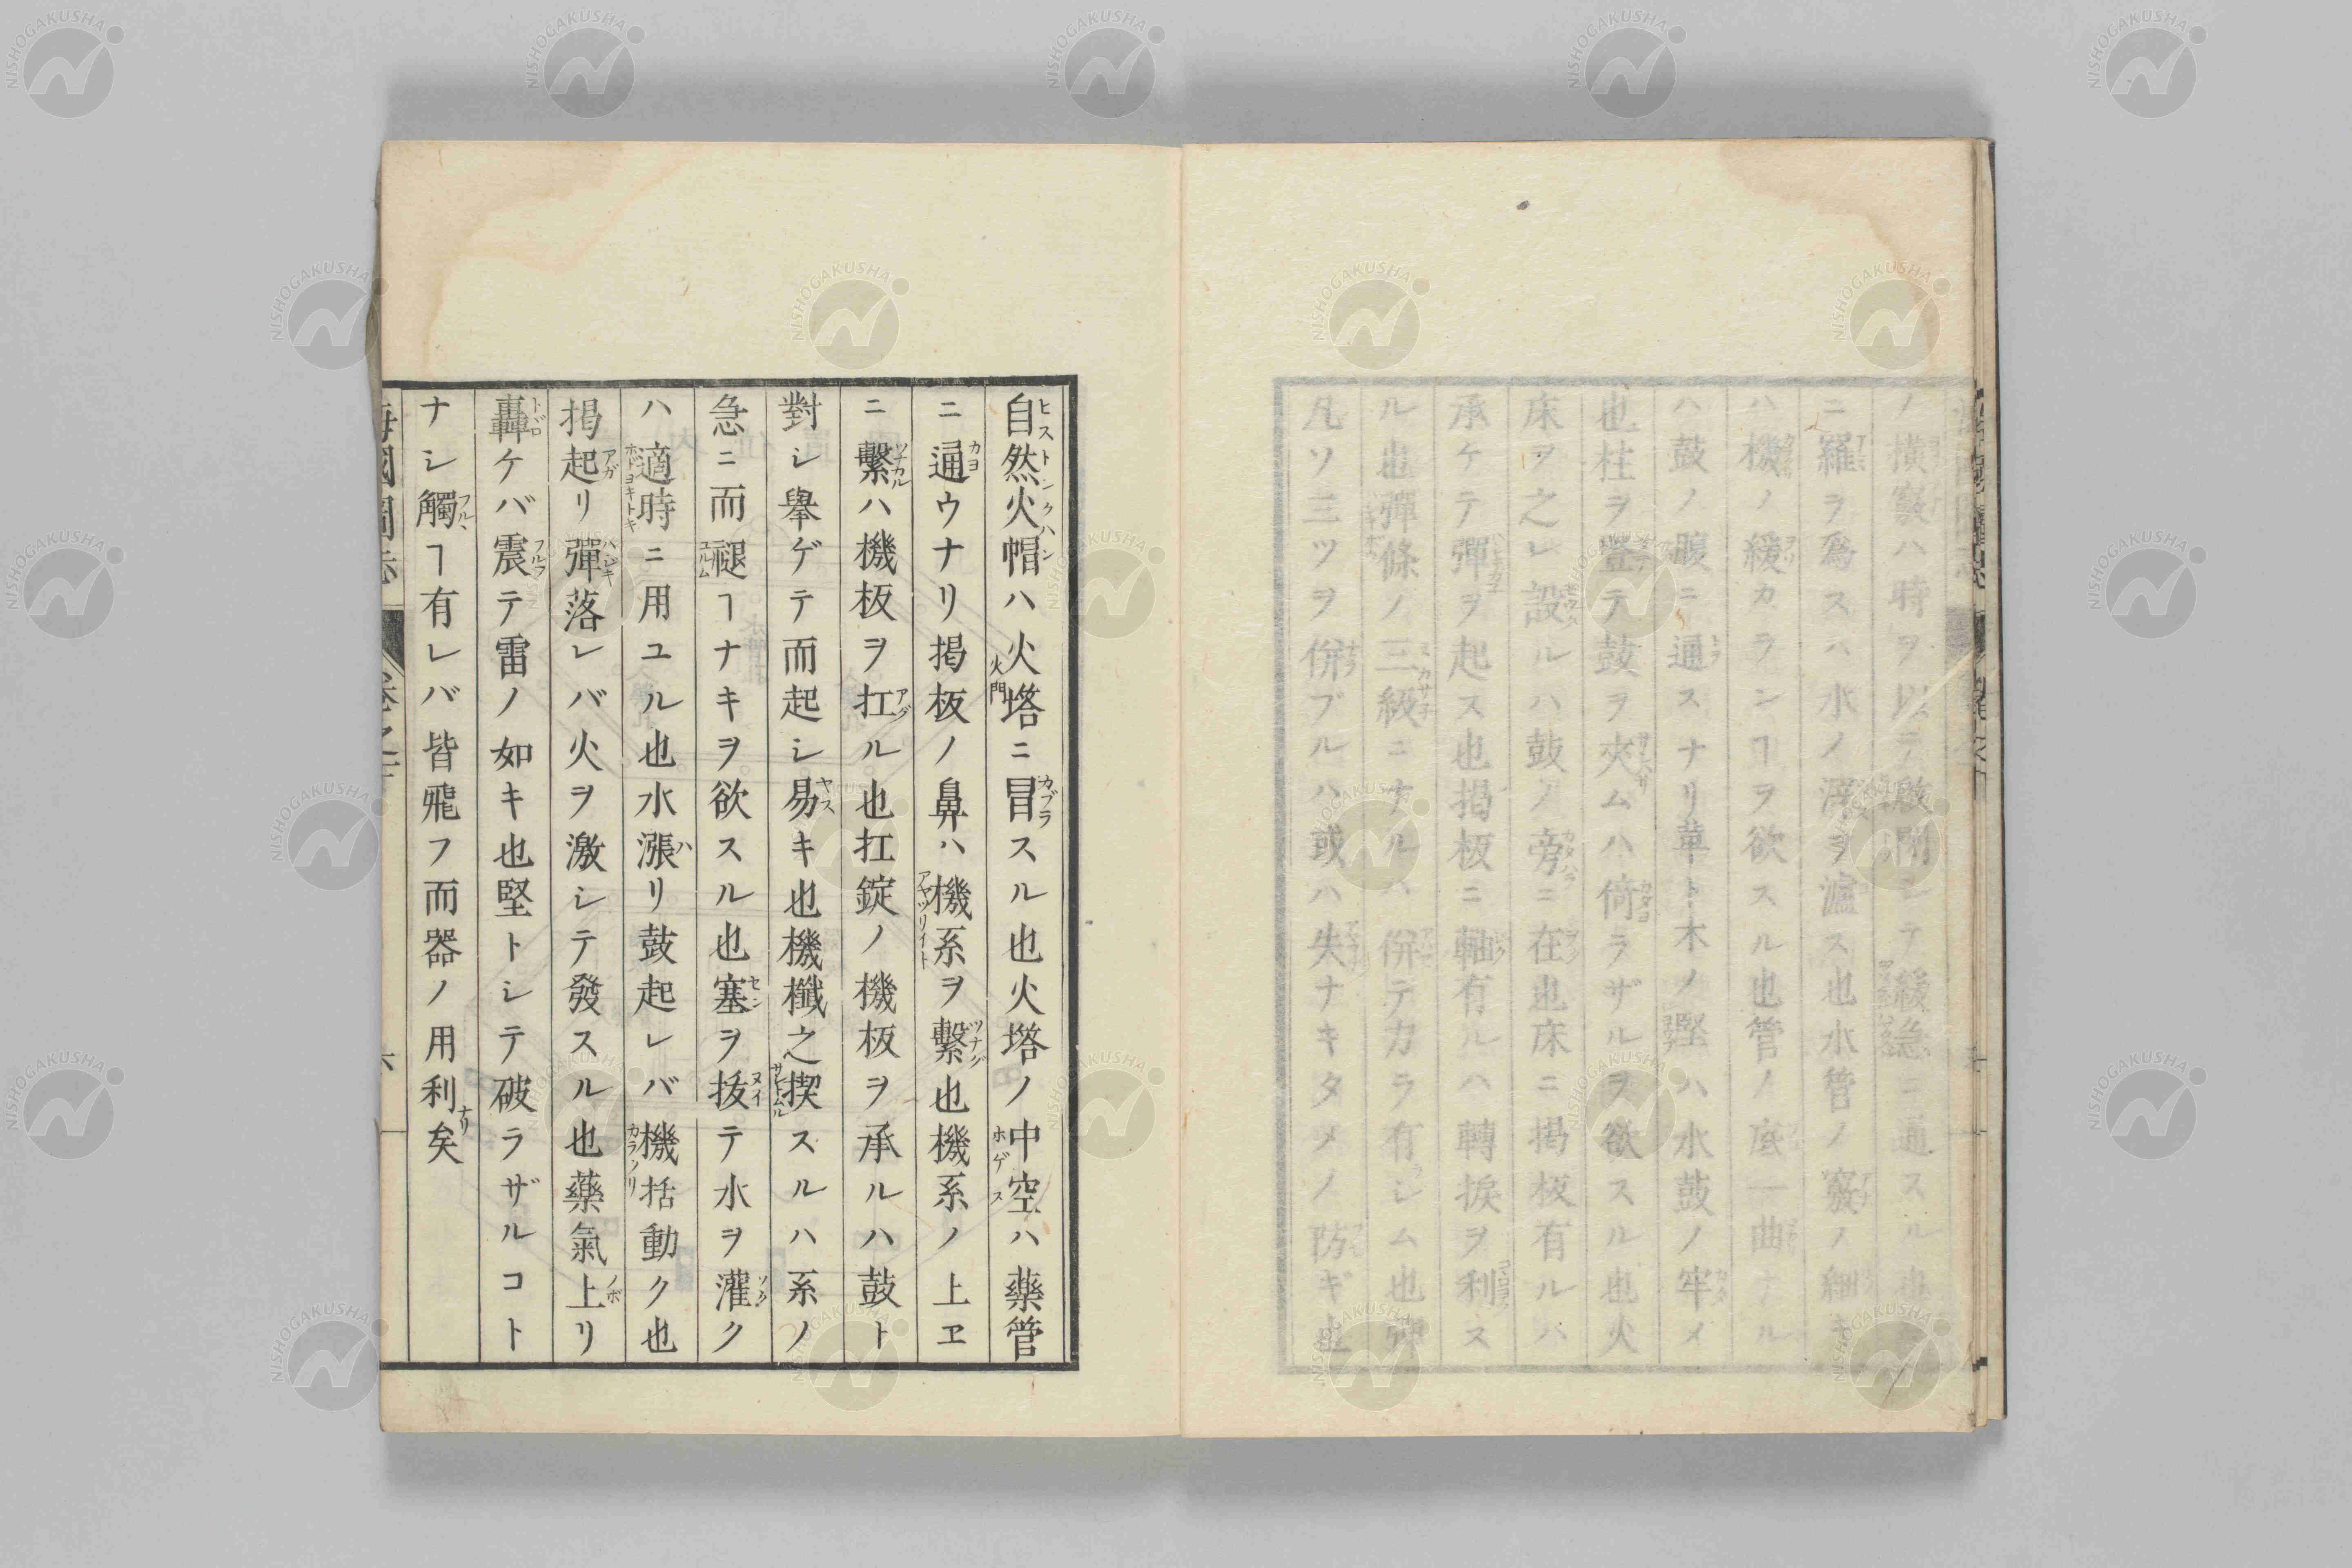 ノ横竅ハ時ヲ以テ啟閉シテ緩急ヲ通スル也
ニ羅ヲ爲スハ水ノ滓ヲ濾ス也水管ノ竅ノ細キ
ハ機ノ緩カランヿヲ欲スル也管ノ底一曲ナル
ハ鼓ノ腹ニ通スナリ革ト木ノ堅ハ水鼓ノ牢メ
也柱ヲ豎テ鼓ヲ夾ムハ倚ラザルヲ欲スル也火
床ヲ之レ設ルハ鼓ノ旁ニ在也床ニ揭板有ルハ
承ケテ彈ヲ起ス也揭板ニ軸有ルハ轉捩ヲ利ス
ル也彈條ノ三級ニナルハ併テ力ラ有シム也彈
凡ソ三ツヲ併ブルハ或ハ失ナキタメノ防ギ也
自然火帽ハ火塔ニ冒スル也火塔ノ中空ハ藥管
ニ通ウナリ揭板ノ鼻ハ機系ヲ繫也機系ノ上ヱ
ニ繫ハ機板ヲ扛ル也扛錠ノ機板ヲ承ルハ鼓ト
對シ擧ゲテ而起シ易キ也機櫼之揳スルハ系ノ
急ニ而褪ヿナキヲ欲スル也塞ヲ拔テ水ヲ灌ク
ハ適時ニ用ユル也水漲リ鼓起レバ機括動ク也
揭起リ彈落レバ火ヲ激シテ發スル也藥氣上リ
轟ケバ震テ雷ノ如キ也堅トシテ破ラザルコト
ナシ觸ヿ有レバ皆飛フ而器ノ用利矣
海國圖志
NISHOGAKUSHA